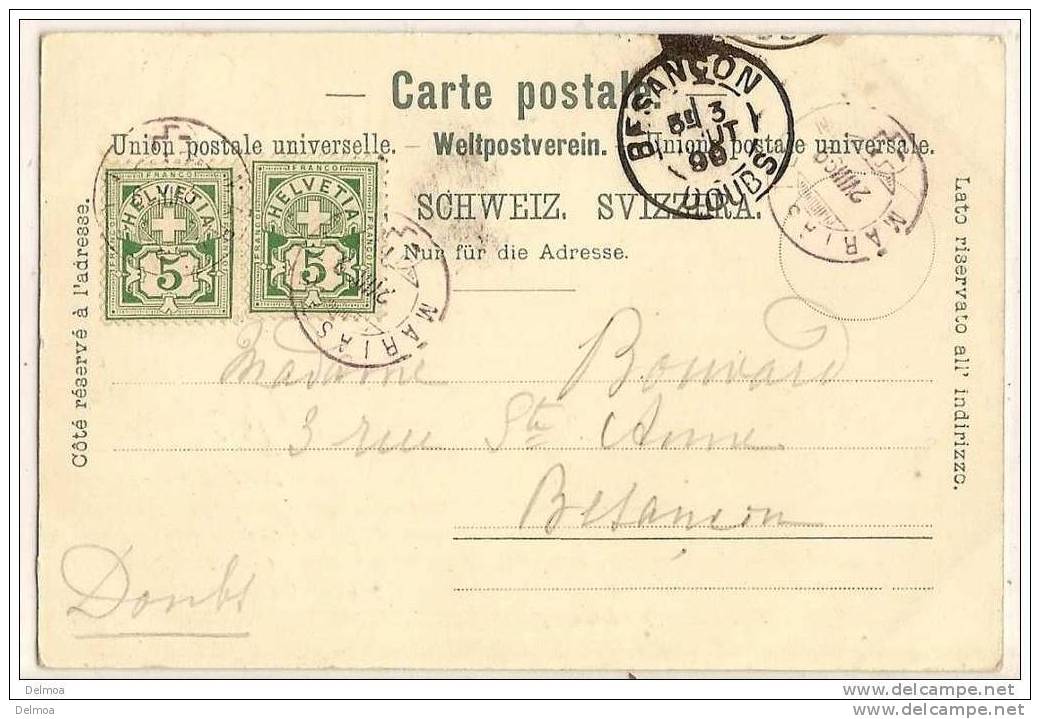 Carte postale
Union postale universelle. — Weltpostverein. — Unione postale universale.
SCHWEIZ. SVIZZERA.
Nur für die Adresse.
Côté réservé à l'adresse.
Lato riservato all' indirizzo.
FRANCO
HELVETIA
5
FRANCO
HELVETIA
5
BESANÇON
3
DOUBS
MARIAS
MARIAS
Madame Bouvard
3 rue Ste Anne
Besançon
Doubs
Delmoa
Delcampe.net
Delmoa
delcampe.net